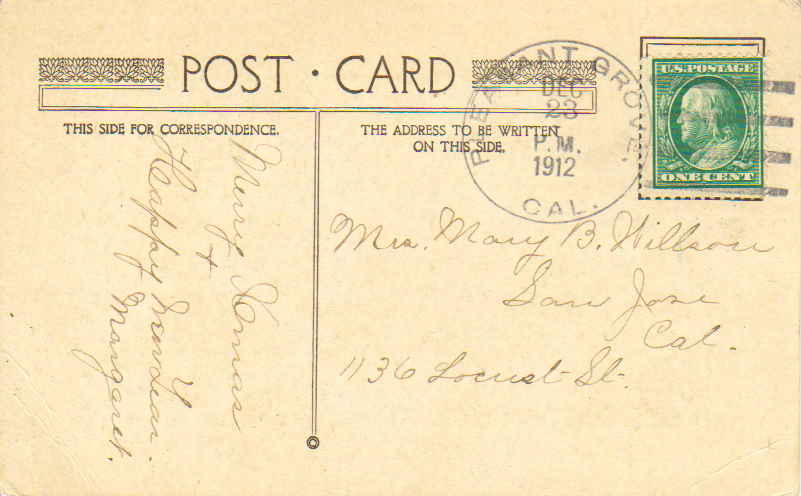 POST · CARD
THIS SIDE FOR CORRESPONDENCE.
THE ADDRESS TO BE WRITTEN
ON THIS SIDE.
PLEASANT GROVE
DEC
23
P.M.
1912
CAL.
U.S. POSTAGE
ONE CENT
Merry Xmas
+
Happy New Year.
Margaret.
Mrs. Mary B. Willson
San Jose
Cal.
1136 Locust St.